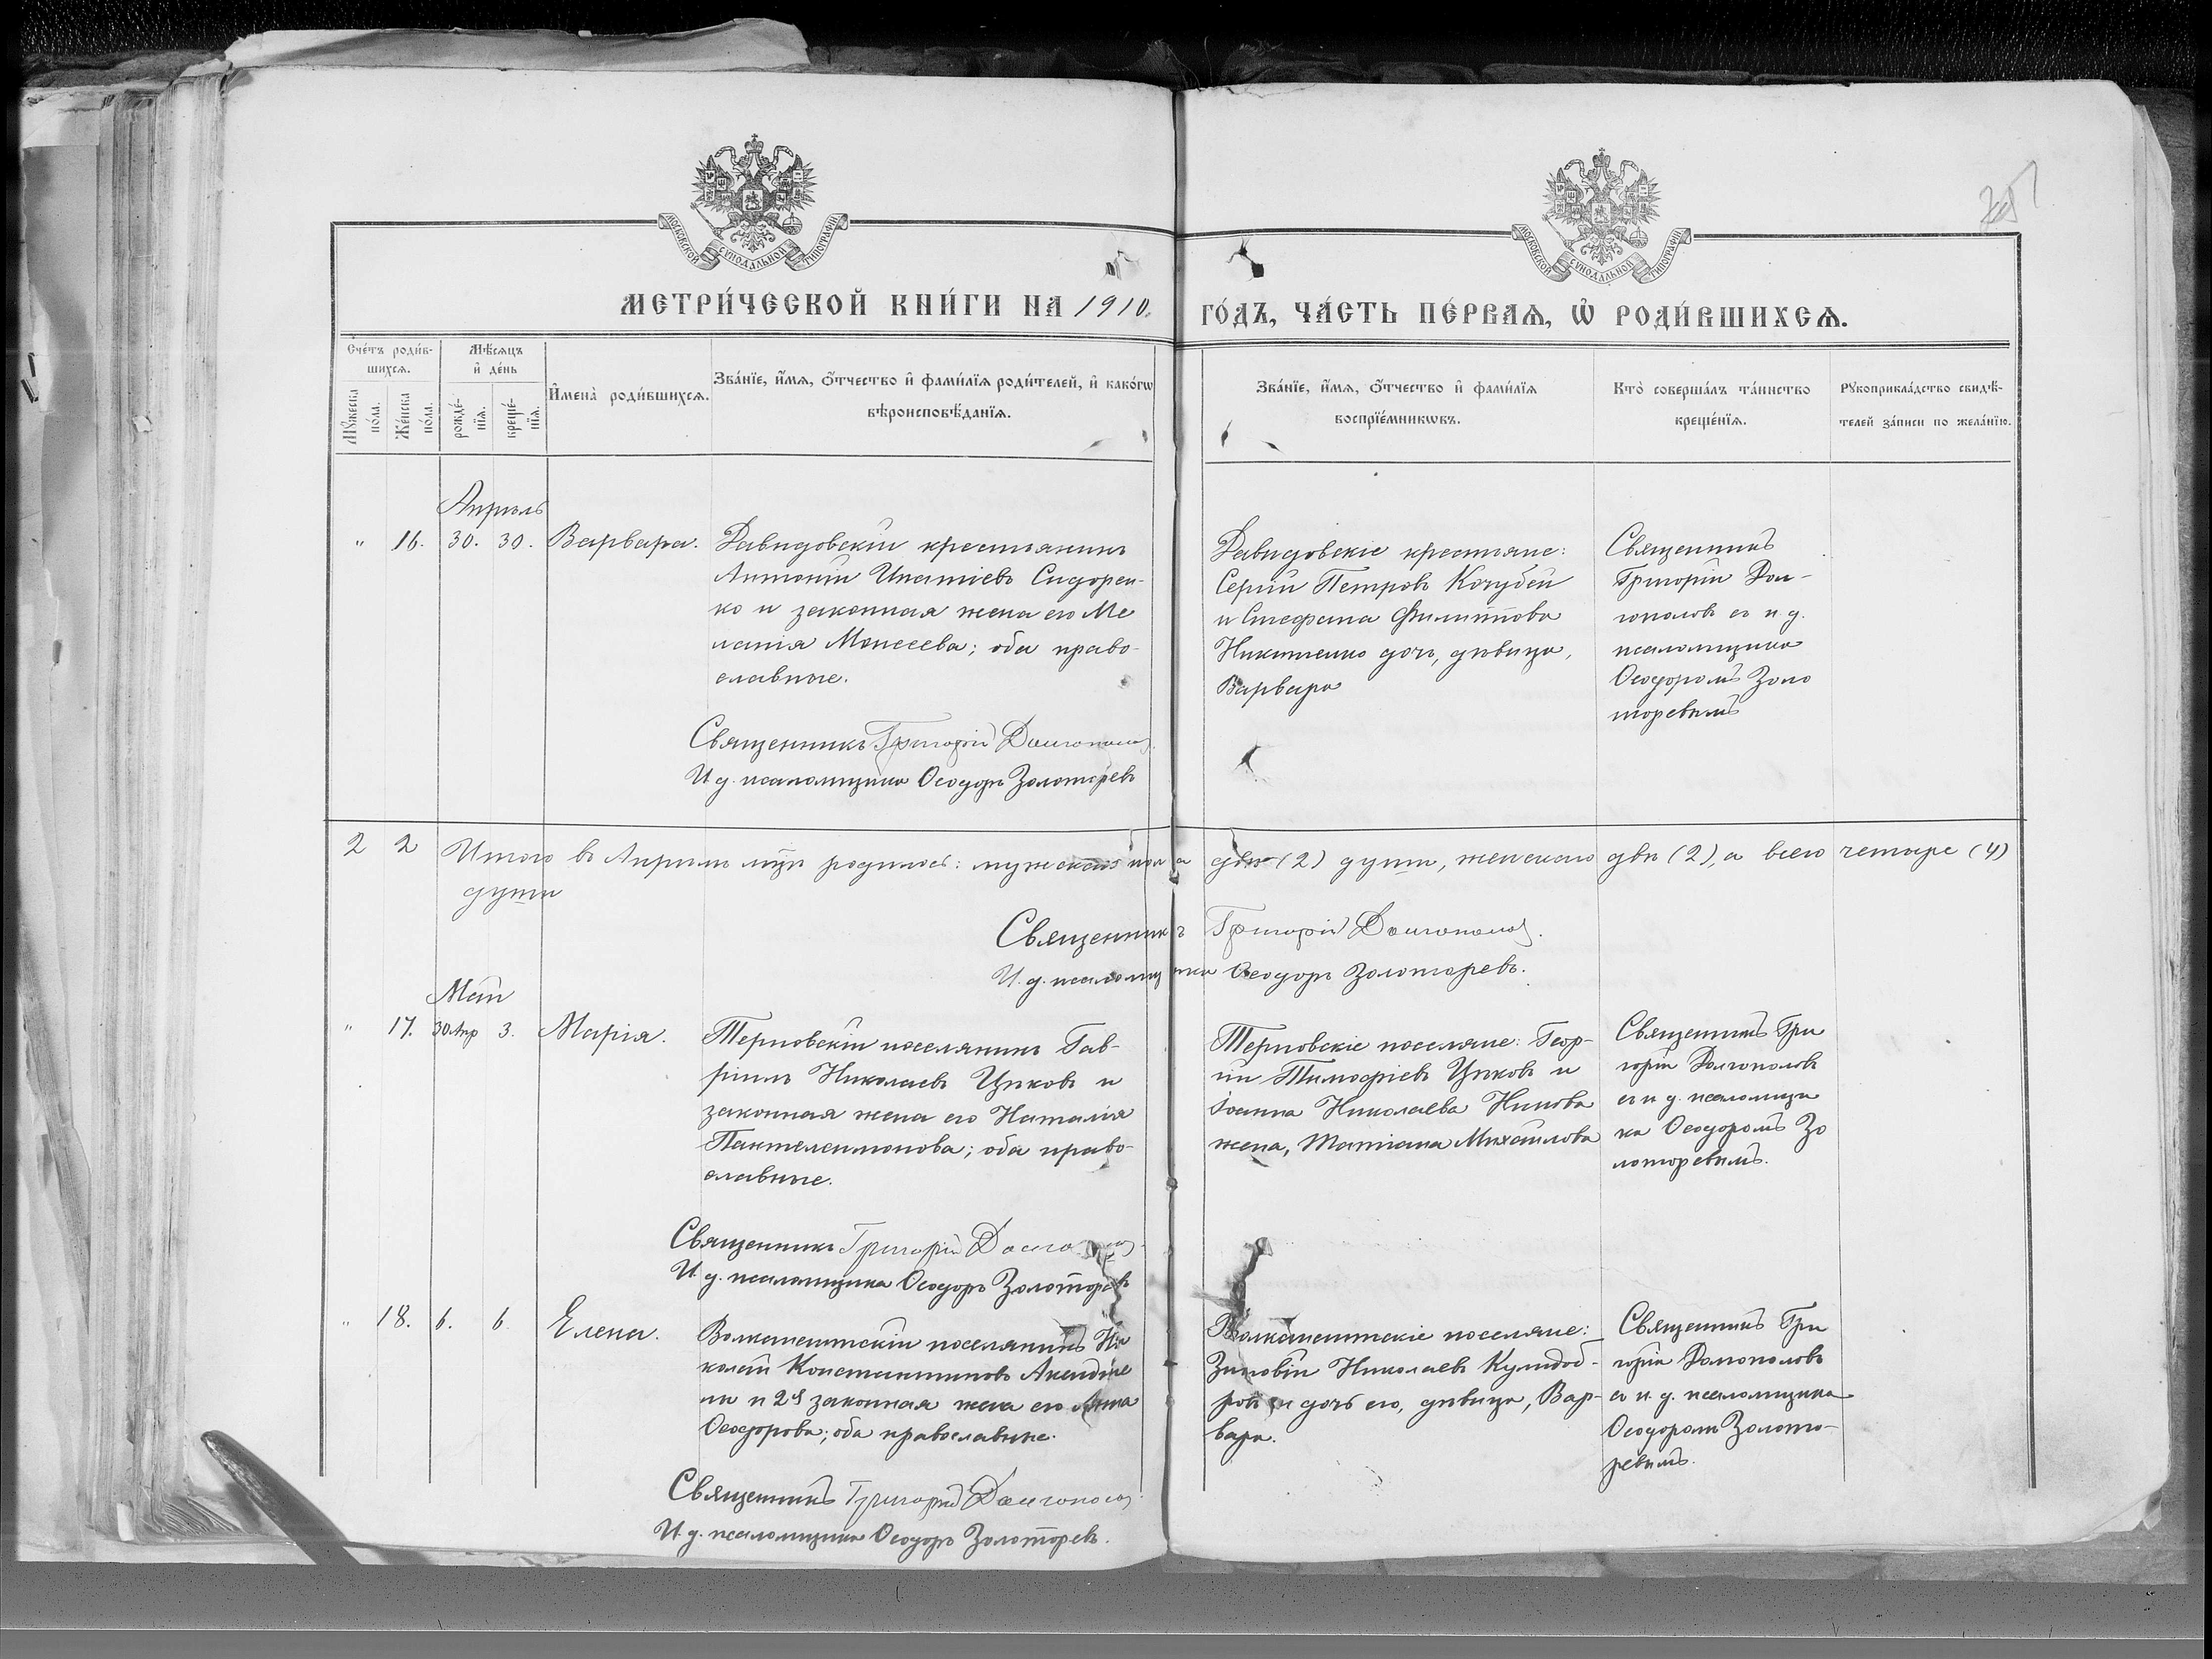 МОСКОВСКОЙ СѴНОДАЛЬНОЙ ТИПОГРАФІИ
МОСКОВСКОЙ СѴНОДАЛЬНОЙ ТИПОГРАФІИ
МЕТРИ́ЧЕСКОЙ КНИ́ГИ НА 1910.
ГО́ДЪ, ЧА́СТЬ ПЕ́РВАѦ, Ѡ҆ РОДИ́ВШИХСѦ.
Сче́тъ роди́в-
шихсѧ.
Мꙋ́жеска
по́ла.
Же́нска
по́ла.
Мѣ́сѧцъ
и҆ де́нь
рожде́-
нїѧ.
креще́-
нїѧ.
И҆мена̀ роди́вшихсѧ.
Зва́нїе, и҆́мѧ, ѻ҆́тчество и҆ фами́лїѧ роди́телей, и҆ како́гѡ
вѣроисповѣ́данїѧ.
Зва́нїе, и҆́мѧ, ѻ҆́тчество и҆ фами́лїѧ
воспрїе́мникѡвъ.
Кто̀ соверша́лъ та́инство
креще́нїѧ.
Рꙋкоприкла́дство свидѣ́-
телей за́писи по жела́нїю.
Апрѣль
" 16. 30. 30. Варвара.
Давидовскій крестьянинъ
Антоній Игнатіевъ Сидорен-
ко и законная жена его Ме
ланія Моисеева; оба право-
славные.
Священникъ Григорій Долгополов
И. д. псаломщика Ѳеодоръ Золоторевъ
Давидовскіе крестьяне:
Сергій Петровъ Кочубей
и Стефана Филиппова
Никитенко дочь, дѣвица,
Варвара
Священникъ
Григорій Дол-
гополовъ съ и. д.
псаломщика
Ѳеодоромъ Золо
торевымъ
2 2 Итого въ Апрѣлѣ м-цѣ родилось: мужескаго пола двѣ (2) души, женскаго двѣ (2), а всего четыре (4)
души
Священникъ Григорій Долгополов.
И. д. псаломщика Ѳеодоръ Золоторевъ.
Май
" 17. 30 Апр 3. Марія.
Терновскій поселянинъ Гав-
ріилъ Николаевъ Цѣковъ и
законная жена его Наталія
Пантелеимонова; оба право-
славные.
Священникъ Григорій Долгополов
И. д. псаломщика Ѳеодоръ Золоторевъ
Терновскіе поселяне: Геор-
гій Тимофіевъ Цѣковъ и
Іоанна Николаева Никова
жена, Татіана Михайлова
Священникъ Гри
горій Долгополовъ
съ и. д. псаломщи
ка Ѳеодоромъ Зо
лоторевымъ.
" 18. 6. 6. Елена.
Волканештскій поселянинъ Ни
колай Константиновъ
и 2я законная жена его Анна
Ѳеодорова; оба православные.
Священникъ Григорій Долгополов
И. д. псаломщика Ѳеодоръ Золоторевъ.
Волканештскіе поселяне:
Зиновій Николаевъ
и дочь его, дѣвица, Вар-
вара.
Священникъ Гри
горій Долгополовъ
съ и. д. псаломщика
Ѳеодоромъ Золото-
ревымъ.